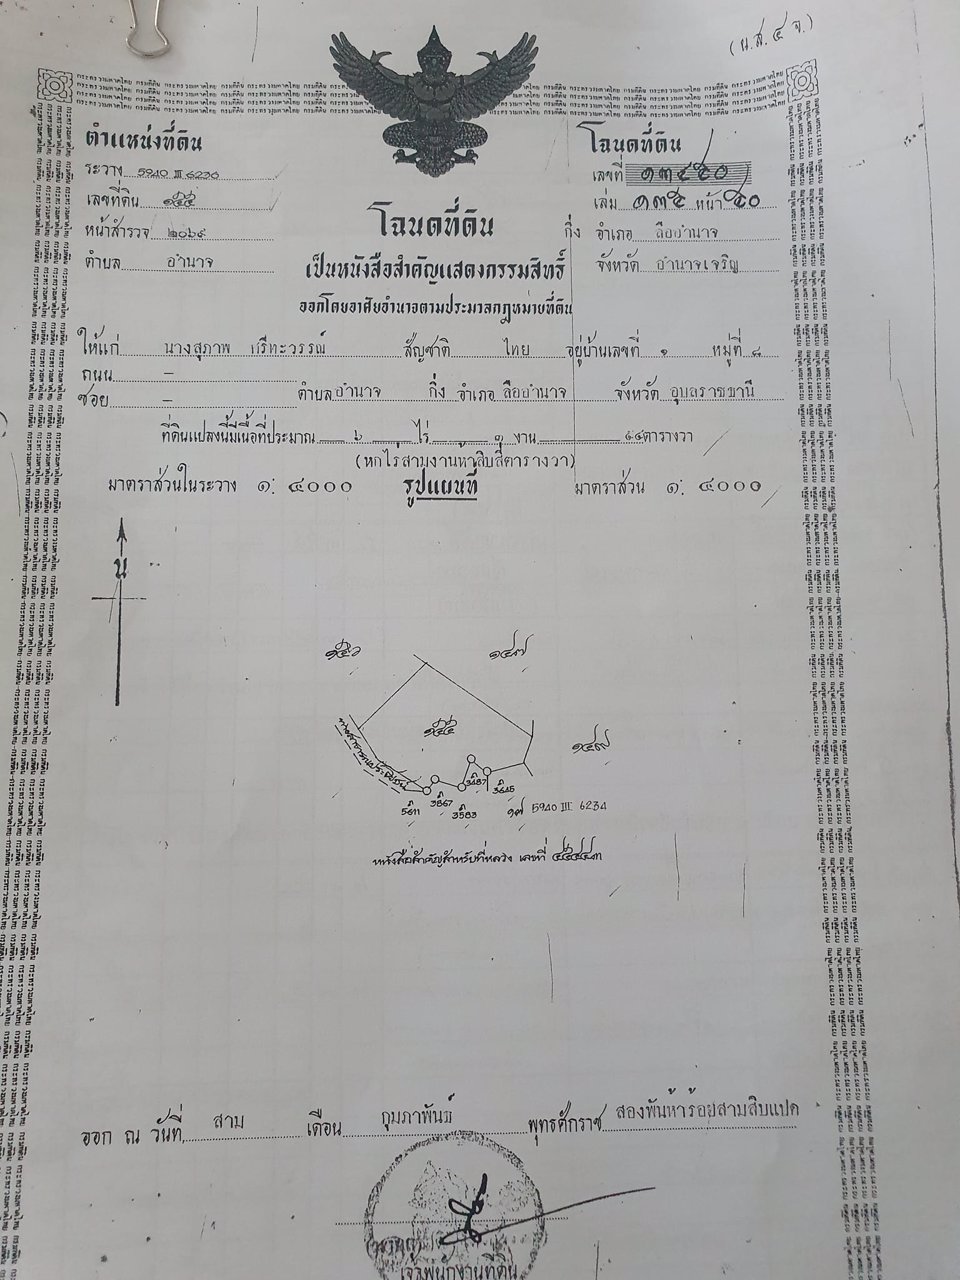 (น.ส. ๔ จ.)
ตำแหน่งที่ดิน
ระวาง 5940 III 6236
เลขที่ดิน
หน้าสำรวจ ๒๐๖๙
ตำบล อำนาจ
โฉนดที่ดิน
เลขที่ ๑๓๔๕๐
เล่ม ๑๓๕ หน้า ๕๐
กิ่ง อำเภอ ลืออำนาจ
จังหวัด อำนาจเจริญ
โฉนดที่ดิน
เป็นหนังสือสำคัญแสดงกรรมสิทธิ์
ออกโดยอาศัยอำนาจตามประมวลกฎหมายที่ดิน
ให้แก่ นางสุภาพ ศรีทะวรรณ์ สัญชาติ ไทย อยู่บ้านเลขที่ ๑ หมู่ที่ ๘
ถนน –
ซอย – ตำบล อำนาจ กิ่ง อำเภอ ลืออำนาจ จังหวัด อุบลราชธานี
ที่ดินแปลงนี้มีเนื้อที่ประมาณ ๖ ไร่ ๓ งาน ๕๔ ตารางวา
(หกไร่สามงานห้าสิบสี่ตารางวา)
มาตราส่วนในระวาง ๑: ๔๐๐๐ รูปแผนที่ มาตราส่วน ๑: ๔๐๐๐
น
๑๔๗
๑๔๙
ทางสาธารณประโยชน์
5611 3867 3583 3487 3645
๑๗ 5940 III 6234
หนังสือสำคัญสำหรับที่หลวง เลขที่
ออก ณ วันที่ สาม เดือน กุมภาพันธ์ พุทธศักราช สองพันห้าร้อยสามสิบแปด
เจ้าพนักงานที่ดิน